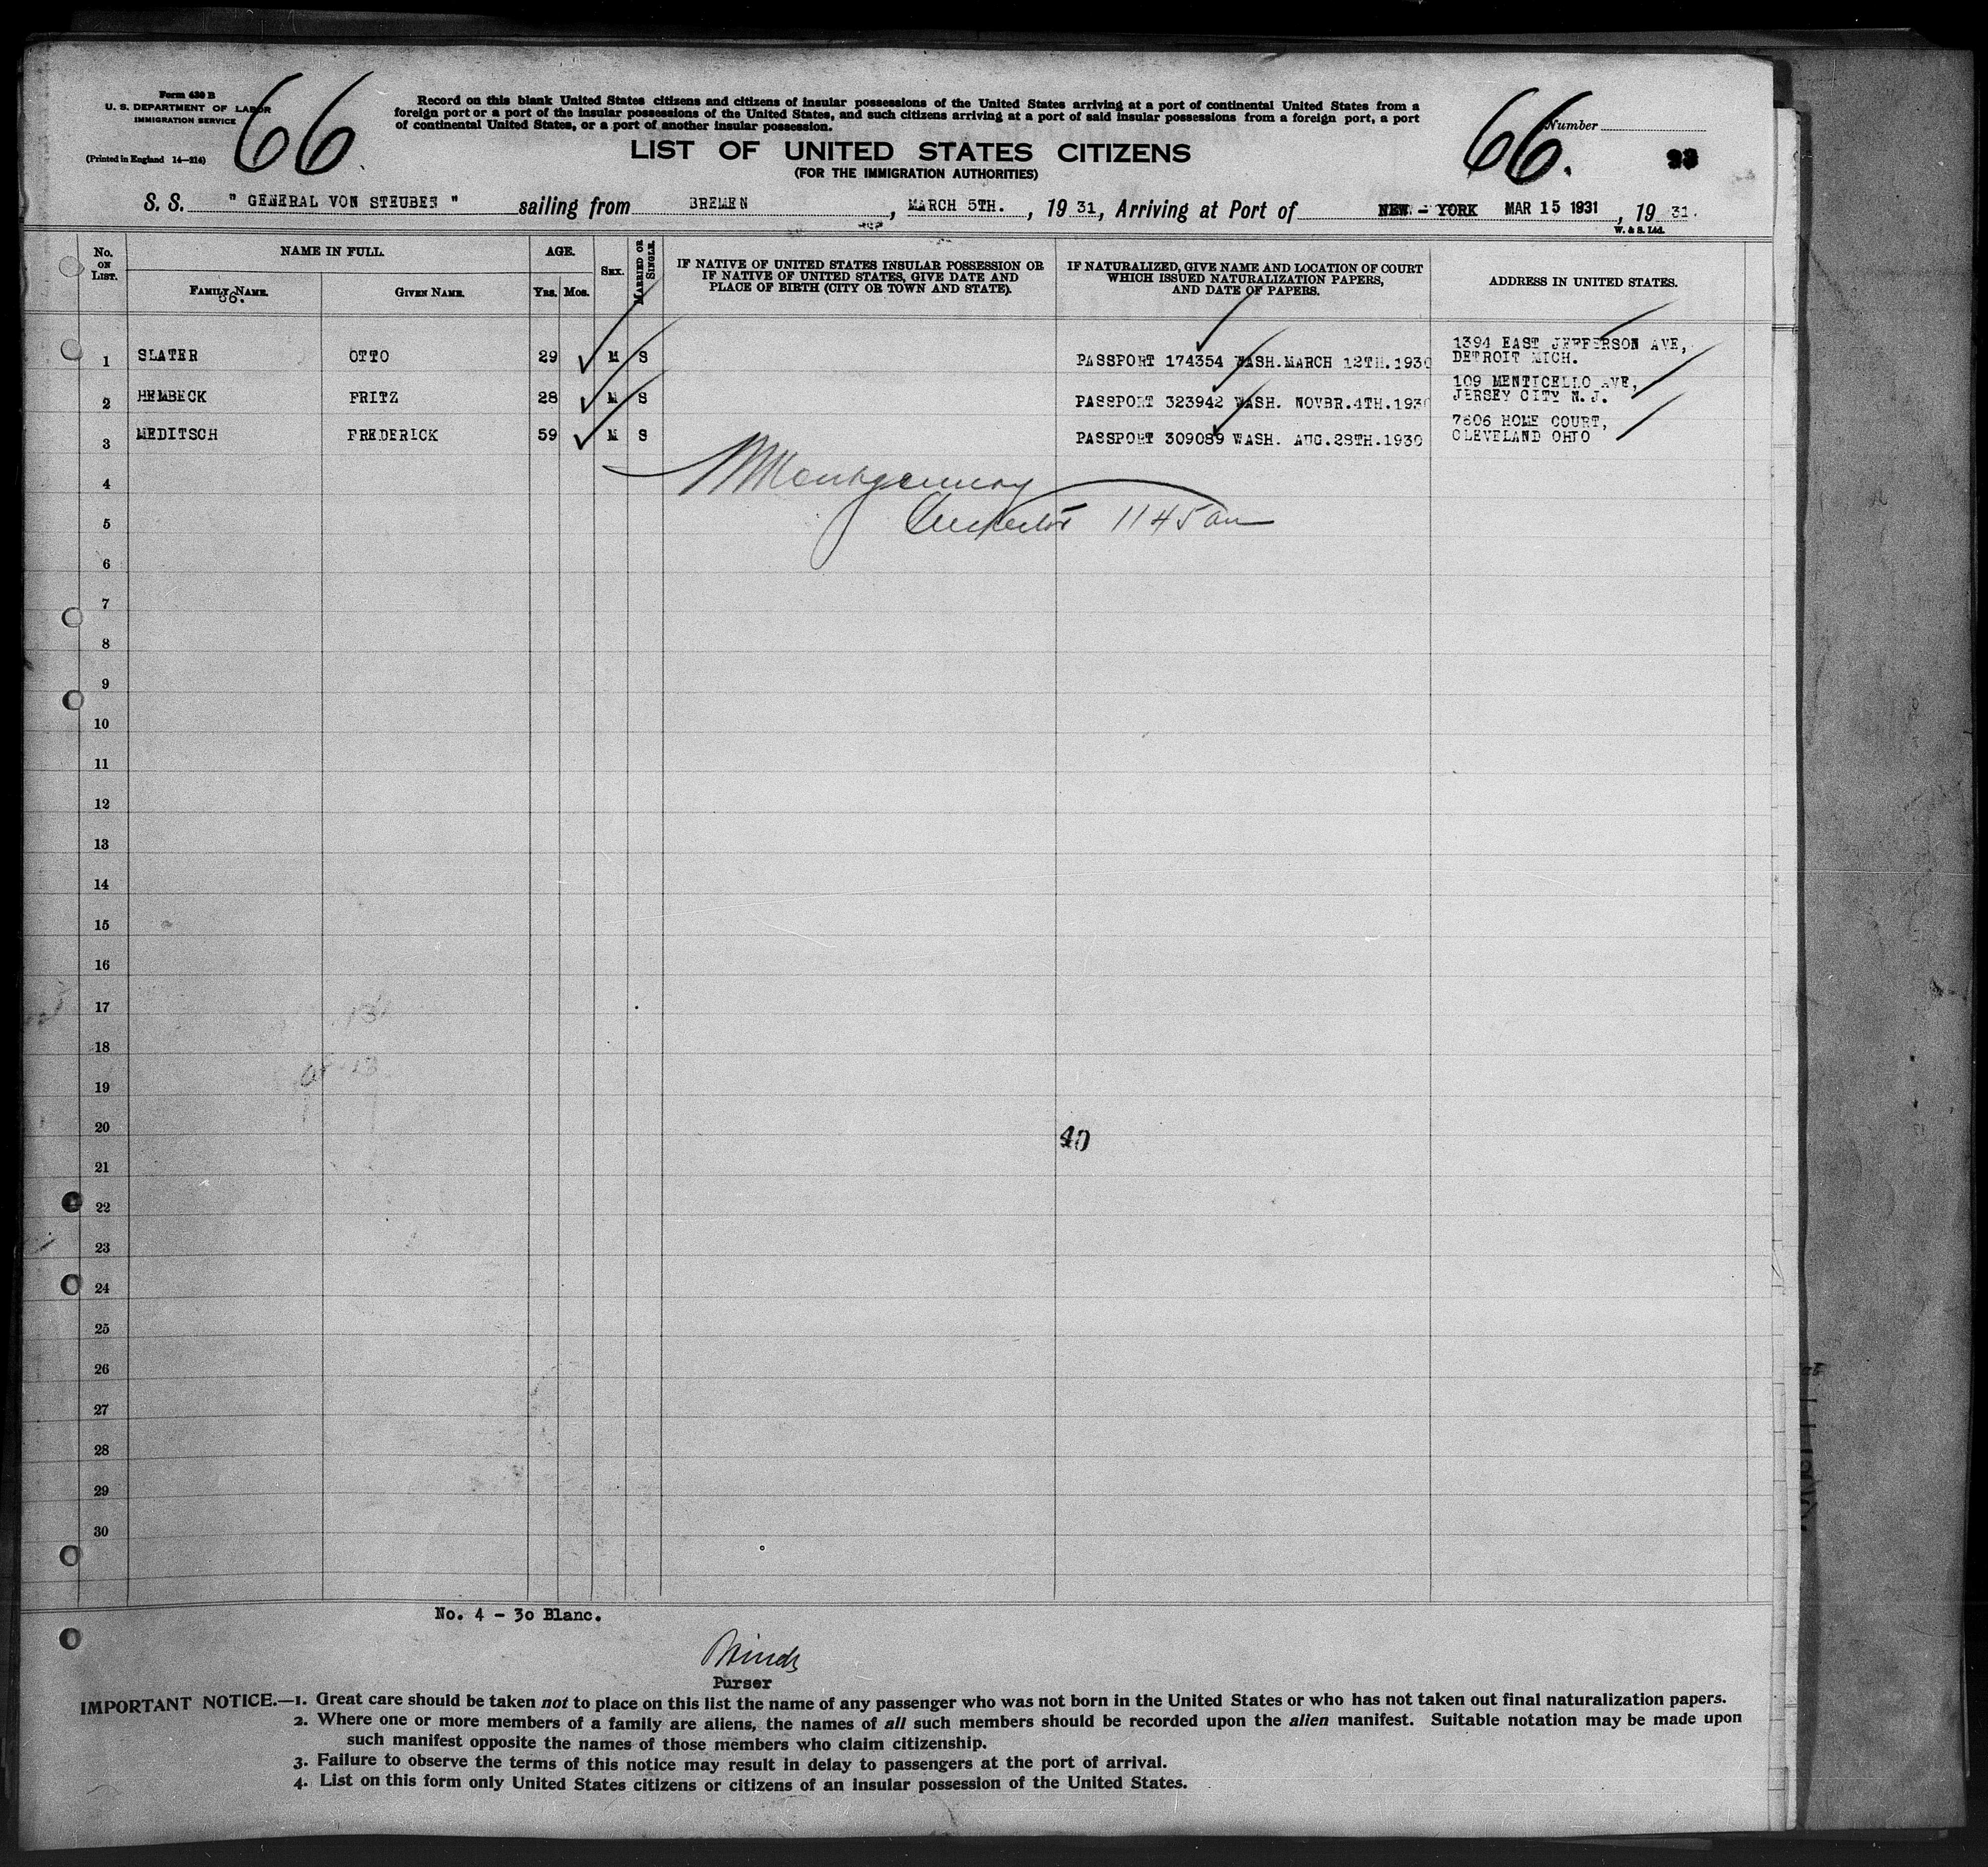 Form 630 B
U. S. DEPARTMENT OF LABOR
IMMIGRATION SERVICE
(Printed in England 14—214)
66
Record on this blank United States citizens and citizens of insular possessions of the United States arriving at a port of continental United States from a
foreign port or a port of the insular possessions of the United States, and such citizens arriving at a port of said insular possessions from a foreign port, a port
of continental United States, or a port of another insular possession.
66.
Number
LIST OF UNITED STATES CITIZENS
(FOR THE IMMIGRATION AUTHORITIES)
S. S. " GENERAL VON STEUBEN " sailing from BREMEN, MARCH 5TH., 19 31, Arriving at Port of NEW - YORK MAR 15 1931, 19 31.
W. & S. Ltd.
No. ON LIST.
NAME IN FULL.
FAMILY NAME.
GIVEN NAME.
AGE.
YRS. MOS.
SEX.
MARRIED OR SINGLE.
IF NATIVE OF UNITED STATES INSULAR POSSESSION OR
IF NATIVE OF UNITED STATES, GIVE DATE AND
PLACE OF BIRTH (CITY OR TOWN AND STATE).
IF NATURALIZED, GIVE NAME AND LOCATION OF COURT
WHICH ISSUED NATURALIZATION PAPERS,
AND DATE OF PAPERS.
ADDRESS IN UNITED STATES.
1 SLATER OTTO 29 M S PASSPORT 174354 WASH.MARCH 12TH.1930 1394 EAST JEFFERSON AVE,
DETROIT MICH.
2 HEMBECK FRITZ 28 M S PASSPORT 323942 WASH. NOVBR.4TH.1930 109 MENTICELLO AVE,
JERSEY CITY N.J.
3 MEDITSCH FREDERICK 59 M S PASSPORT 309089 WASH. AUG.28TH.1930 7606 HOME COURT,
CLEVELAND OHIO
4
Montgomery
5
Inspector 1145 am
6
7
8
9
10
11
12
13
14
15
16
17
18
19
20
40
21
22
23
24
25
26
27
28
29
30
No. 4 - 30 Blanc.
Purser
IMPORTANT NOTICE.—1. Great care should be taken not to place on this list the name of any passenger who was not born in the United States or who has not taken out final naturalization papers.
2. Where one or more members of a family are aliens, the names of all such members should be recorded upon the alien manifest. Suitable notation may be made upon
such manifest opposite the names of those members who claim citizenship.
3. Failure to observe the terms of this notice may result in delay to passengers at the port of arrival.
4. List on this form only United States citizens or citizens of an insular possession of the United States.